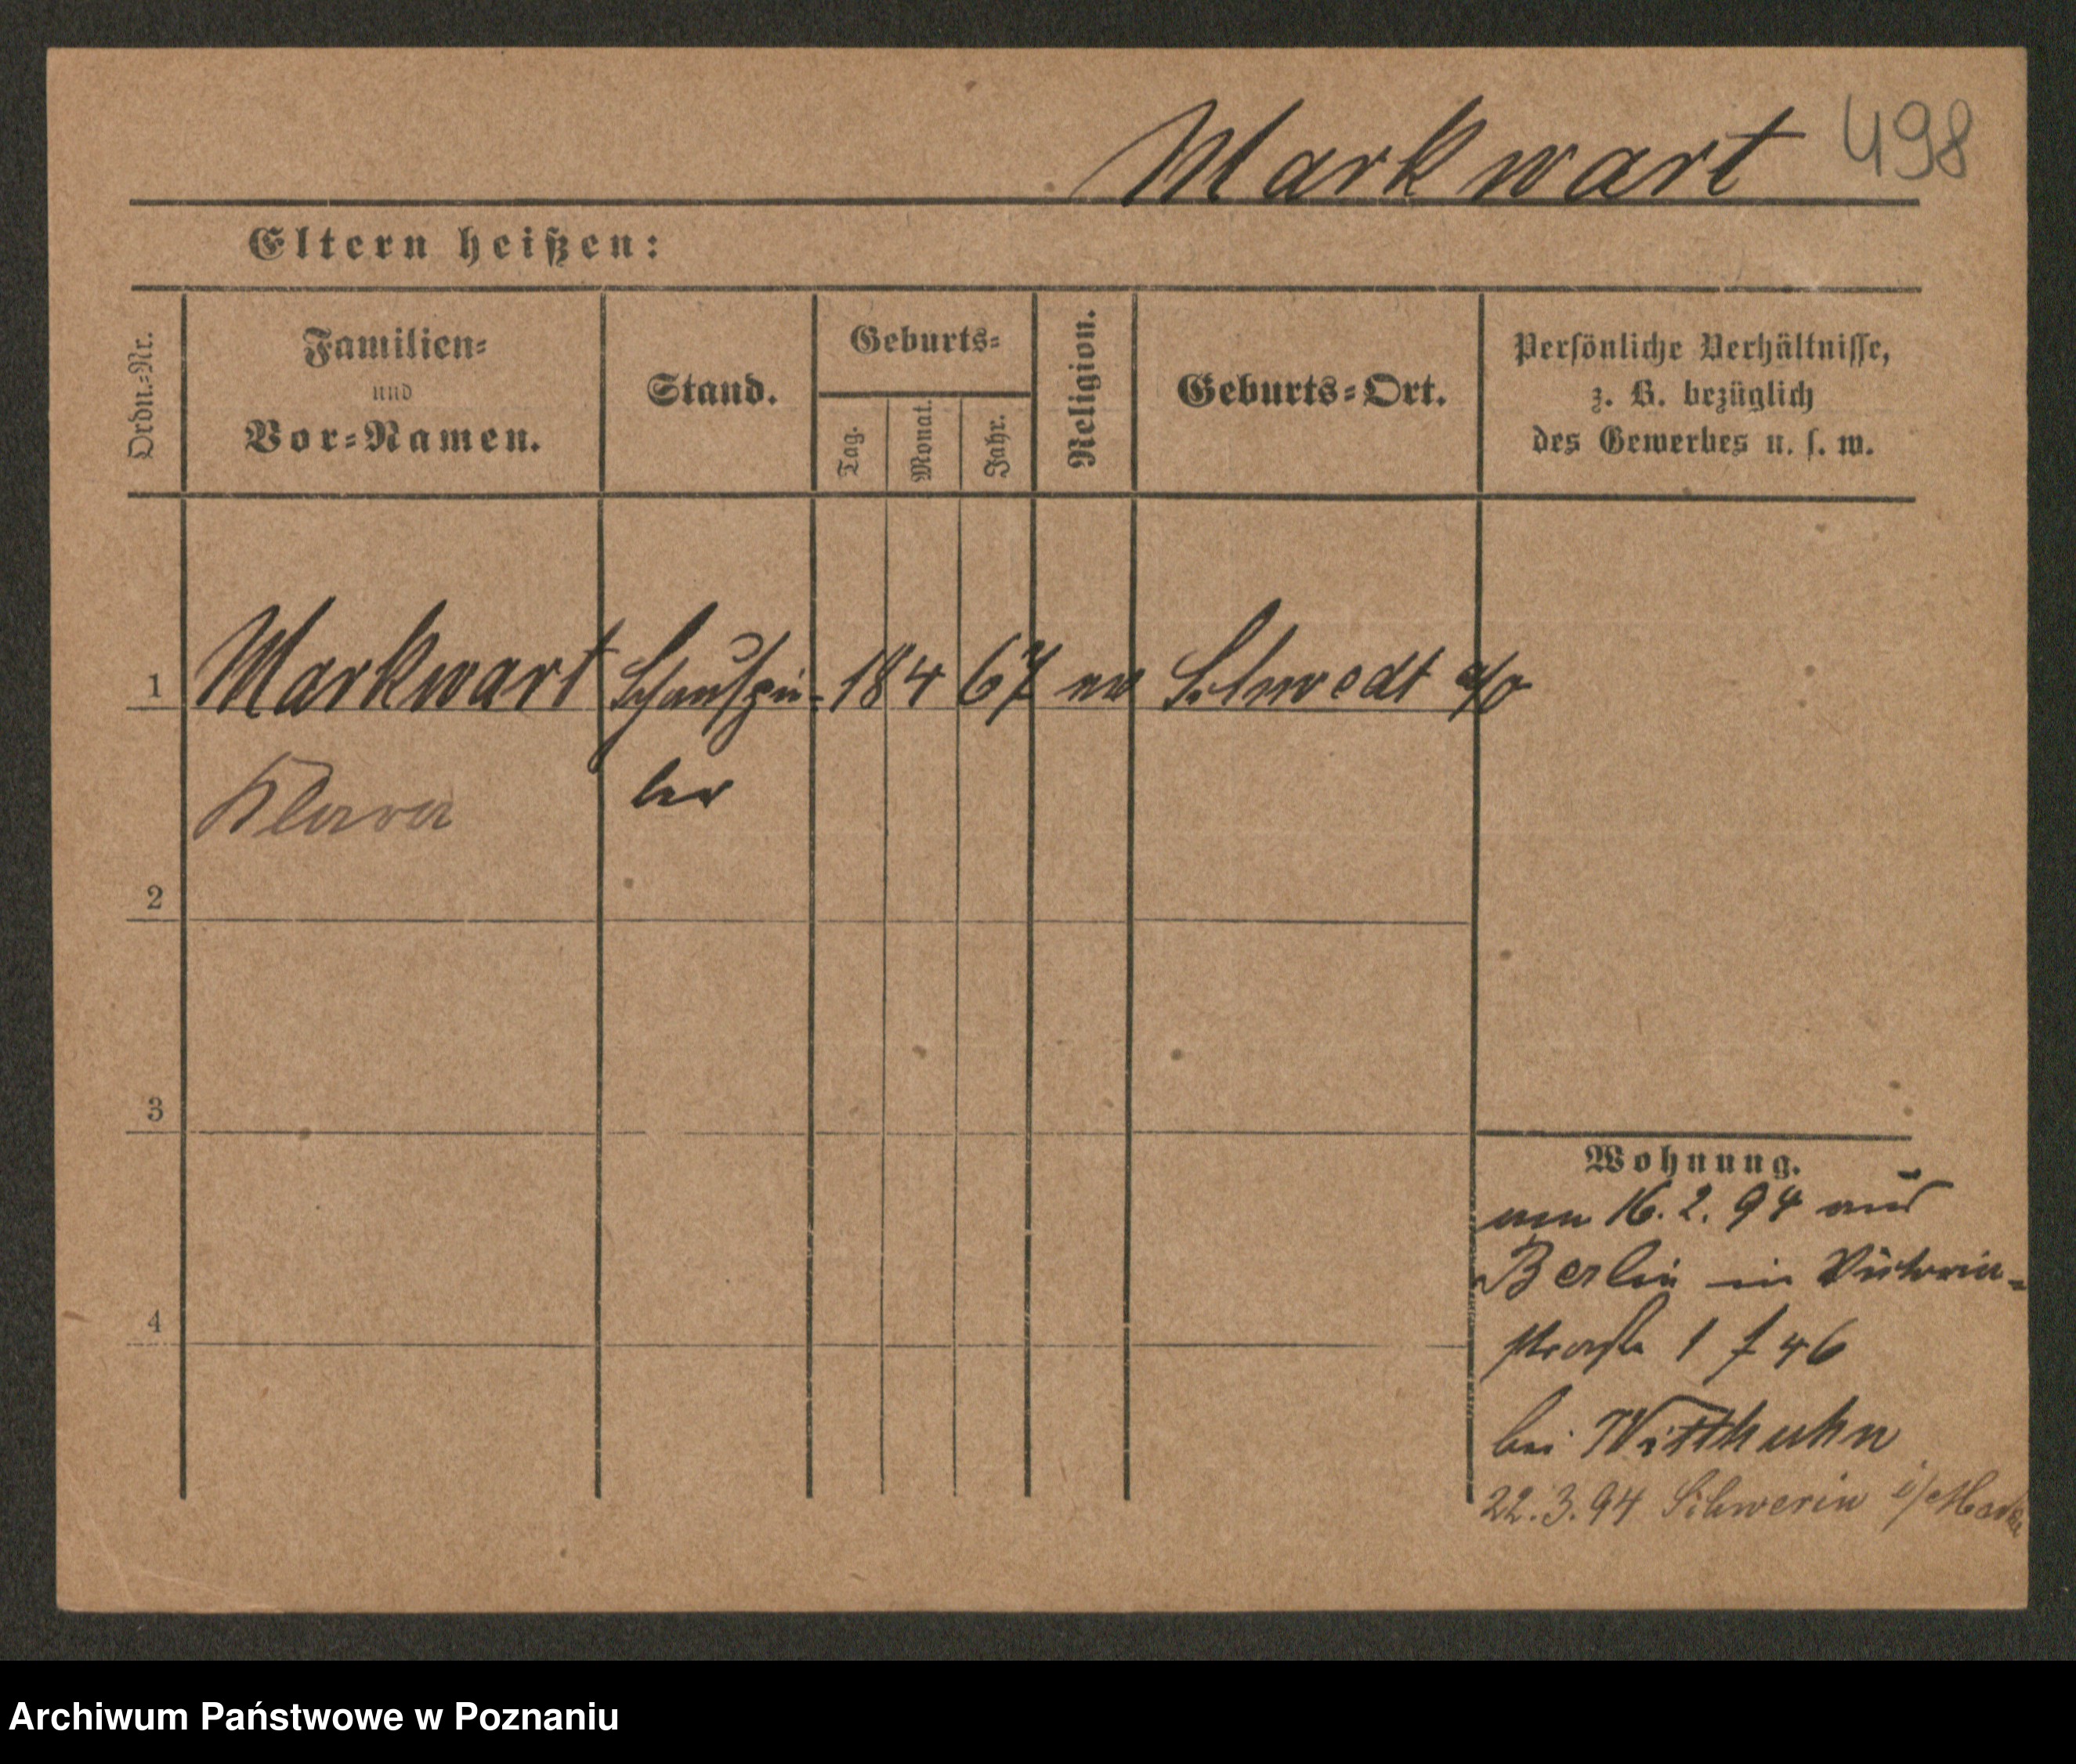 Markwart 498
Eltern heißen:
Ordn.-Nr.
Familien-
und
Vor-Namen.
Stand.
Geburts-
Tag.
Monat.
Jahr.
Religion.
Geburts-Ort.
Persönliche Verhältnisse,
z. B. bezüglich
des Gewerbes u. s. w.
1 Markwart Schauspie- 18 4 67 ev Schwedt a/o
Klara ler
2
3
4
Wohnung.
am 16. 2. 94 aus
Berlin in Victoria-
straße 1 f 46
bei Witthuhn
22. 3. 94 Schwerin i/Meck
Archiwum Państwowe w Poznaniu